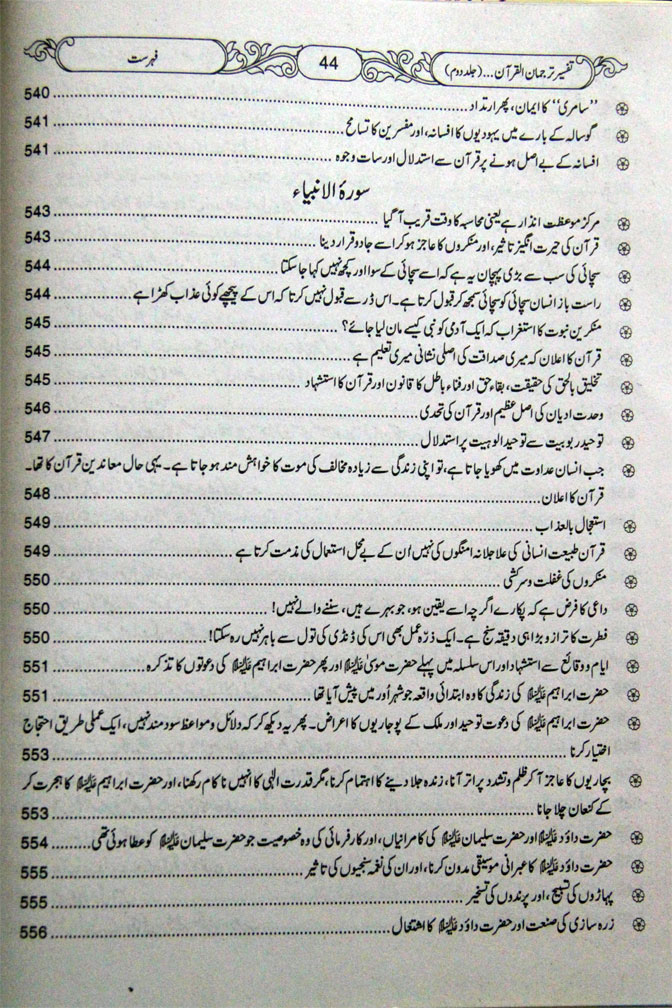 تفسیر ترجمان القرآن...(جلد دوم) 44 فہرست
’’سامری‘‘ کا ایمان، پھر ارتداد 540
گوسالہ کے بارے میں یہودیوں کا افسانہ، اور مفسرین کا تسامح 541
افسانہ کے بے اصل ہونے پر قرآن سے استدلال اور سات وجوہ 541
سورۃ الانبیاء
مرکز موعظت انذار ہے یعنی محاسبہ کا وقت قریب آ گیا 543
قرآن کی حیرت انگیز تاثیر، اور منکروں کا عاجز ہو کر اسے جادو قرار دینا 543
سچائی کی سب سے بڑی پہچان یہ ہے کہ اسے سچائی کے سوا اور کچھ نہیں کہا جا سکتا 544
راست باز انسان سچائی کو سچائی سمجھ کر قبول کرتا ہے۔ اس ڈر سے قبول نہیں کرتا کہ اس کے پیچھے کوئی عذاب کھڑا ہے 544
منکرین نبوت کا استغراب کہ ایک آدمی کو نبی کیسے مان لیا جائے؟ 545
قرآن کا اعلان کہ میری صداقت کی اصلی نشانی میری تعلیم ہے 545
تخلیق بالحق کی حقیقت، بقاء حق اور فناء باطل کا قانون اور قرآن کا استشہاد 545
وحدت ادیان کی اصل عظیم اور قرآن کی تحدی 546
توحید ربوبیت سے توحید الوہیت پر استدلال 547
جب انسان عداوت میں کھویا جاتا ہے، تو اپنی زندگی سے زیادہ مخالف کی موت کا خواہش مند ہو جاتا ہے۔ یہی حال معاندین قرآن کا تھا۔
قرآن کا اعلان 548
استعجال بالعذاب 549
قرآن طبیعت انسانی کی علاجلانہ امنگوں کی نہیں اُن کے بے محل استعمال کی مذمت کرتا ہے 549
منکروں کی غفلت و سرکشی 550
داعی کا فرض ہے کہ پکارے اگرچہ اسے یقین ہو، جو بہرے ہیں، سننے والے نہیں! 550
فطرت کا ترازو بڑا ہی دقیقہ سنج ہے۔ ایک ذرّہ عمل بھی اس کی ڈنڈی کی تول سے باہر نہیں رہ سکتا! 550
ایام و وقائع سے استشہاد اور اس سلسلہ میں پہلے حضرت موسیٰ علیہ السلام اور پھر حضرت ابراہیم علیہ السلام کی دعوتوں کا تذکرہ 551
حضرت ابراہیم علیہ السلام کی زندگی کا وہ ابتدائی واقعہ جو شہر اُور میں پیش آیا تھا 551
حضرت ابراہیم علیہ السلام کی دعوت توحید اور ملک کے پوجاریوں کا اعراض۔ پھر یہ دیکھ کر کہ دلائل و مواعظ سود مند نہیں، ایک عملی طریق احتجاج
اختیار کرنا 553
پجاریوں کا عاجز آ کر ظلم و تشدد پر اتر آنا، زندہ جلا دینے کا اہتمام کرنا، مگر قدرت الٰہی کا انہیں ناکام رکھنا، اور حضرت ابراہیم علیہ السلام کا ہجرت کر
کے کنعان چلا جانا 553
حضرت داؤد علیہ السلام اور حضرت سلیمان علیہ السلام کی کامرانیاں، اور کارفرمائی کی وہ خصوصیت جو حضرت سلیمان علیہ السلام کو عطا ہوئی تھی 554
حضرت داؤد علیہ السلام کا عبرانی موسیقی مدون کرنا، اور ان کی نغمہ سنجیوں کی تاثیر 555
پہاڑوں کی تسبیح، اور پرندوں کی تسخیر 555
زرہ سازی کی صنعت اور حضرت داؤد علیہ السلام کا اشتغال 556